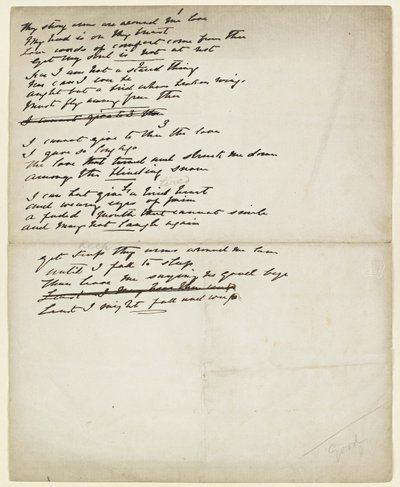 Thy strong arms are around me love
My head is on thy breast
Low words of comfort come from thee
Yet my soul is not at rest
For I am but a startled thing
Nor can I ever be
Aught but a bird whose broken wing
Must fly away from thee
I cannot give to thee
3
I cannot give to thee the love
I gave so long ago
The love that turned and struck me down
Among the blinding snow
I can but give a tired heart
And weary eyes of pain
A faded mouth that cannot smile
And may not laugh again
Yet keep thy arms around me love
Until I fall to sleep
Then leave me saying no good bye
Lest I might fall and weep
Good